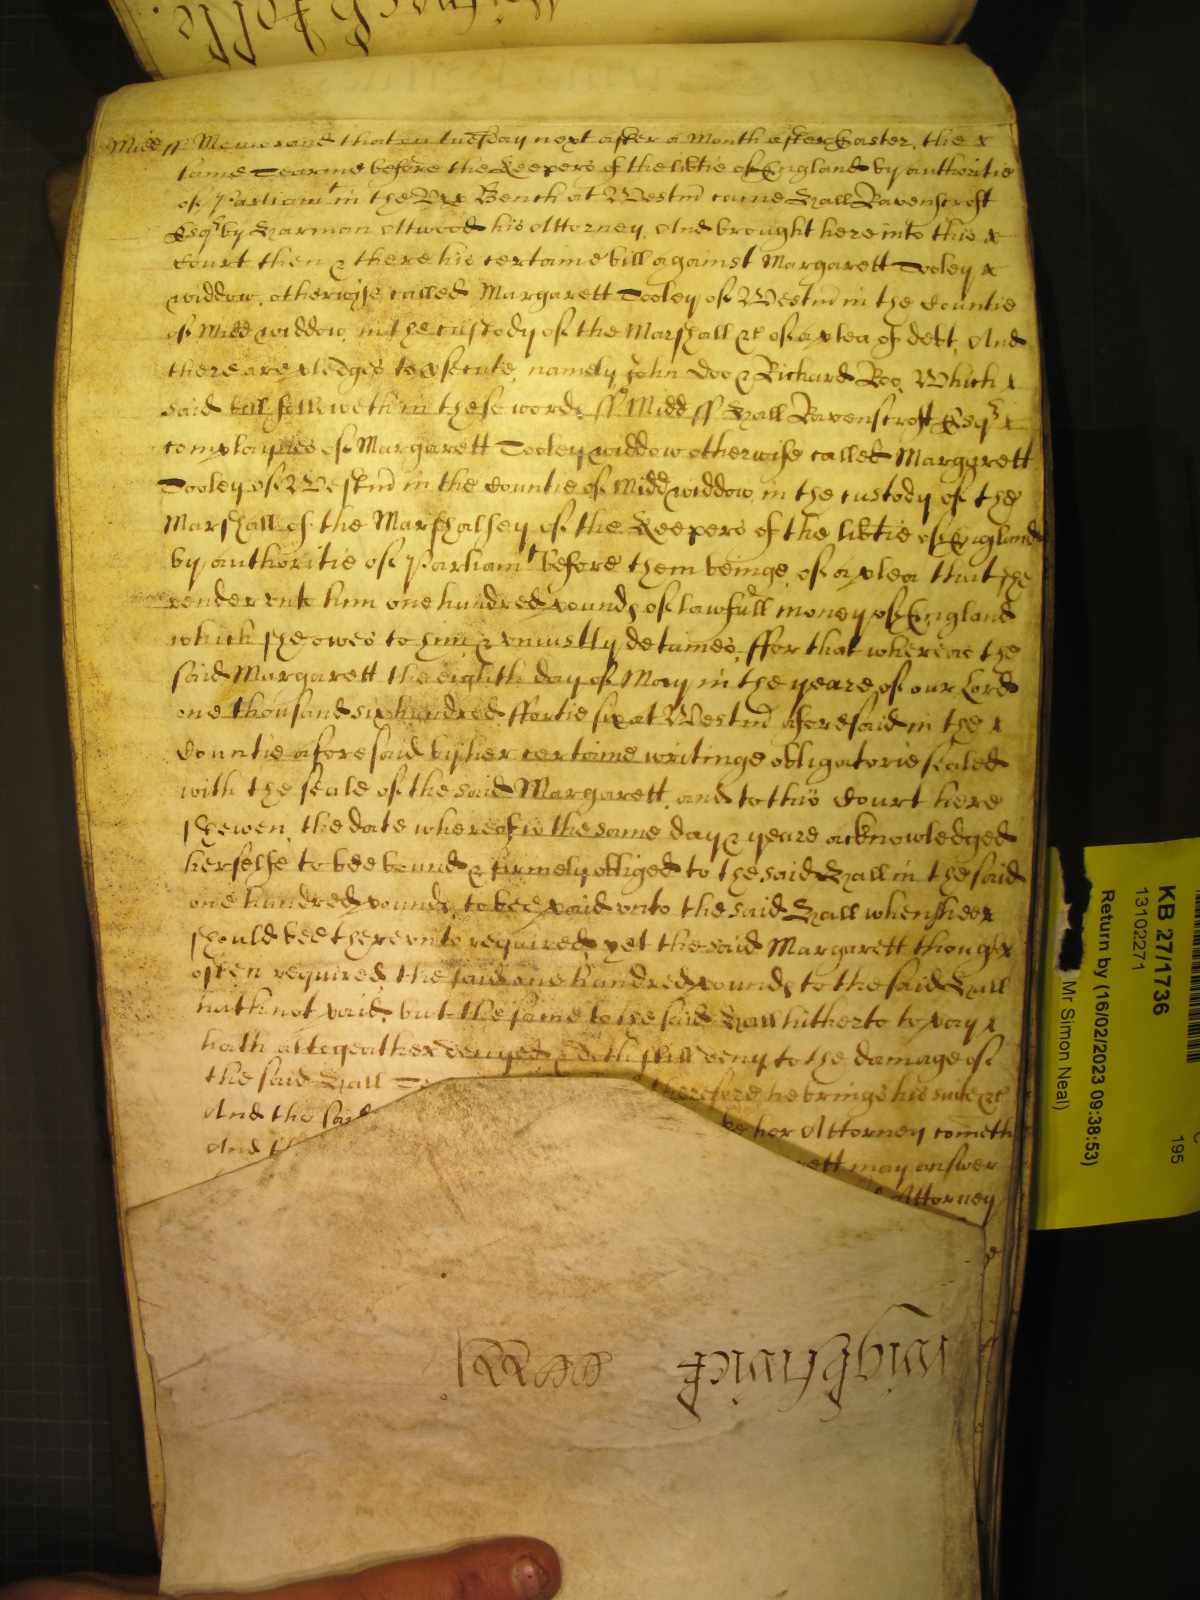 Midd ss Memorand that on tuesday next after a Month after Easter, the x
same Tearme before the Keepers of the libtie of England by authoritie
of Parliamt in the Upp Bench at Westmr came Hall Ravenscroft
Esqr by Harman Attwood his Attorney, And brought here into this x
Court then & there his certaine bill against Margarett Dooley x
widdow, otherwise called Margarett Dooley of Westmr in the Countie
of Midd widdow, in the custody of the Marshall &c of a plea of debt, And
there are pledges to psecute, namely John Doo & Richard Roo, Which x
said bill followeth in these words ss Midd ss Hall Ravenscroft Esqr x
complaynes of Margarett Dooley widdow otherwise called Margarett
Dooley of Westmr in the Countie of Midd widdow, in the custody of the
Marshall of the Marshalsey of the Keepers of the libtie of England
by authoritie of Parliamt before them beinge, of a plea that she
render unto him one hundred pounds of lawfull money of England
which she owes to him & uniustly detaines, ffor that whereas the
said Margarett the eighth day of May in the yeare of our Lord
one thousand six hundred ffortie six at Westmr aforesaid in the x
Countie aforesaid by her certaine writinge obligatorie sealed
with the seale of the said Margarett, and to this Court here
shewen, the date whereof is the same day & yeare acknowledged
herselfe to bee bound & firmely obliged to the said Hall in the said
one hundred pounds to bee paid unto the said Hall when shee x
should bee thereunto required, yet the said Margarett though x
often required, the said one hundred pounds to the said Hall
hath not paid, but the same to the said Hall hitherto to pay x
hath altogeather denyed & doth still deny to the damage of
the said Hall therefore he brings his suite &c
And the said by her Attorney cometh
And th ett may answer
Attorney
Wightwick
KB 27/1736
13102271
Return by (16/02/2023 09:38:53)
Mr Simon Neal)
195